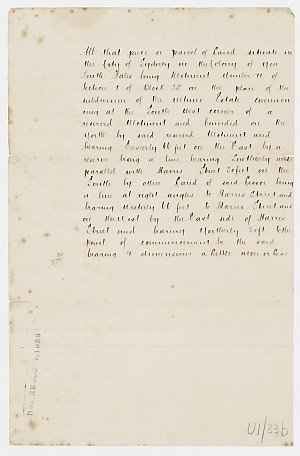 All that piece or parcel of Land situate in
the City of Sydney in the Colony of New
South Wales being Allotment Number 11 of
Section 1 of Block 28 on the plan of the
subdivision of the Ultimo Estate commen
cing at the South West corner of a
reserved Allotment and bounded on the
North by said reserved Allotment and
bearing Easterly 66 feet on the East by a
reserve being a line bearing Southerly and
parallel with Harris Street 30 feet on the
South by other Land of said Lessor being
a line at right angles to Harris Street and
bearing Westerly 66 feet to Harris Street and
on the West by the East side of Harris
Street and bearing Northerly 30 ft to the
point of commencement be the said
bearings & dimensions a little more or less
U1/33b